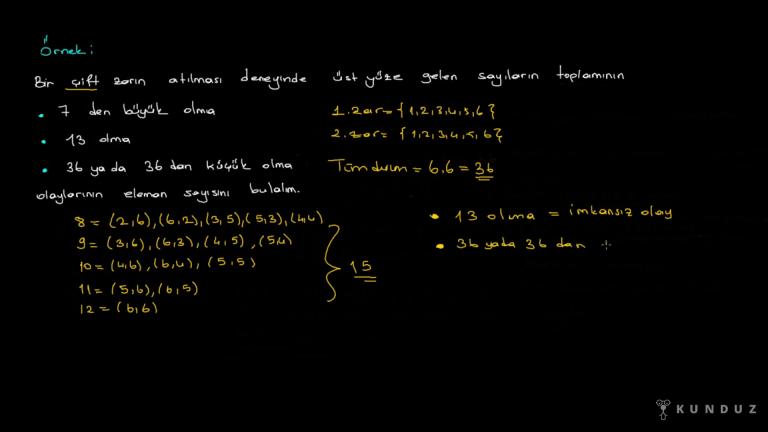 Örnek:
Bir çift zarın atılması deneyinde üst yüze gelen sayıların toplamının
• 7 den büyük olma
• 13 olma
• 36 ya da 36 dan küçük olma
olaylarının eleman sayısını bulalım.
1.zar = {1,2,3,4,5,6}
2.zar = {1,2,3,4,5,6}
Tüm durum = 6.6 = 36
8 = (2,6),(6,2),(3,5),(5,3),(4,4)
9 = (3,6),(6,3),(4,5),(5,4)
10 = (4,6),(6,4),(5,5)
11 = (5,6),(6,5)
12 = (6,6)
15
• 13 olma = imkansız olay
• 36 yada 36 dan
KUNDUZ